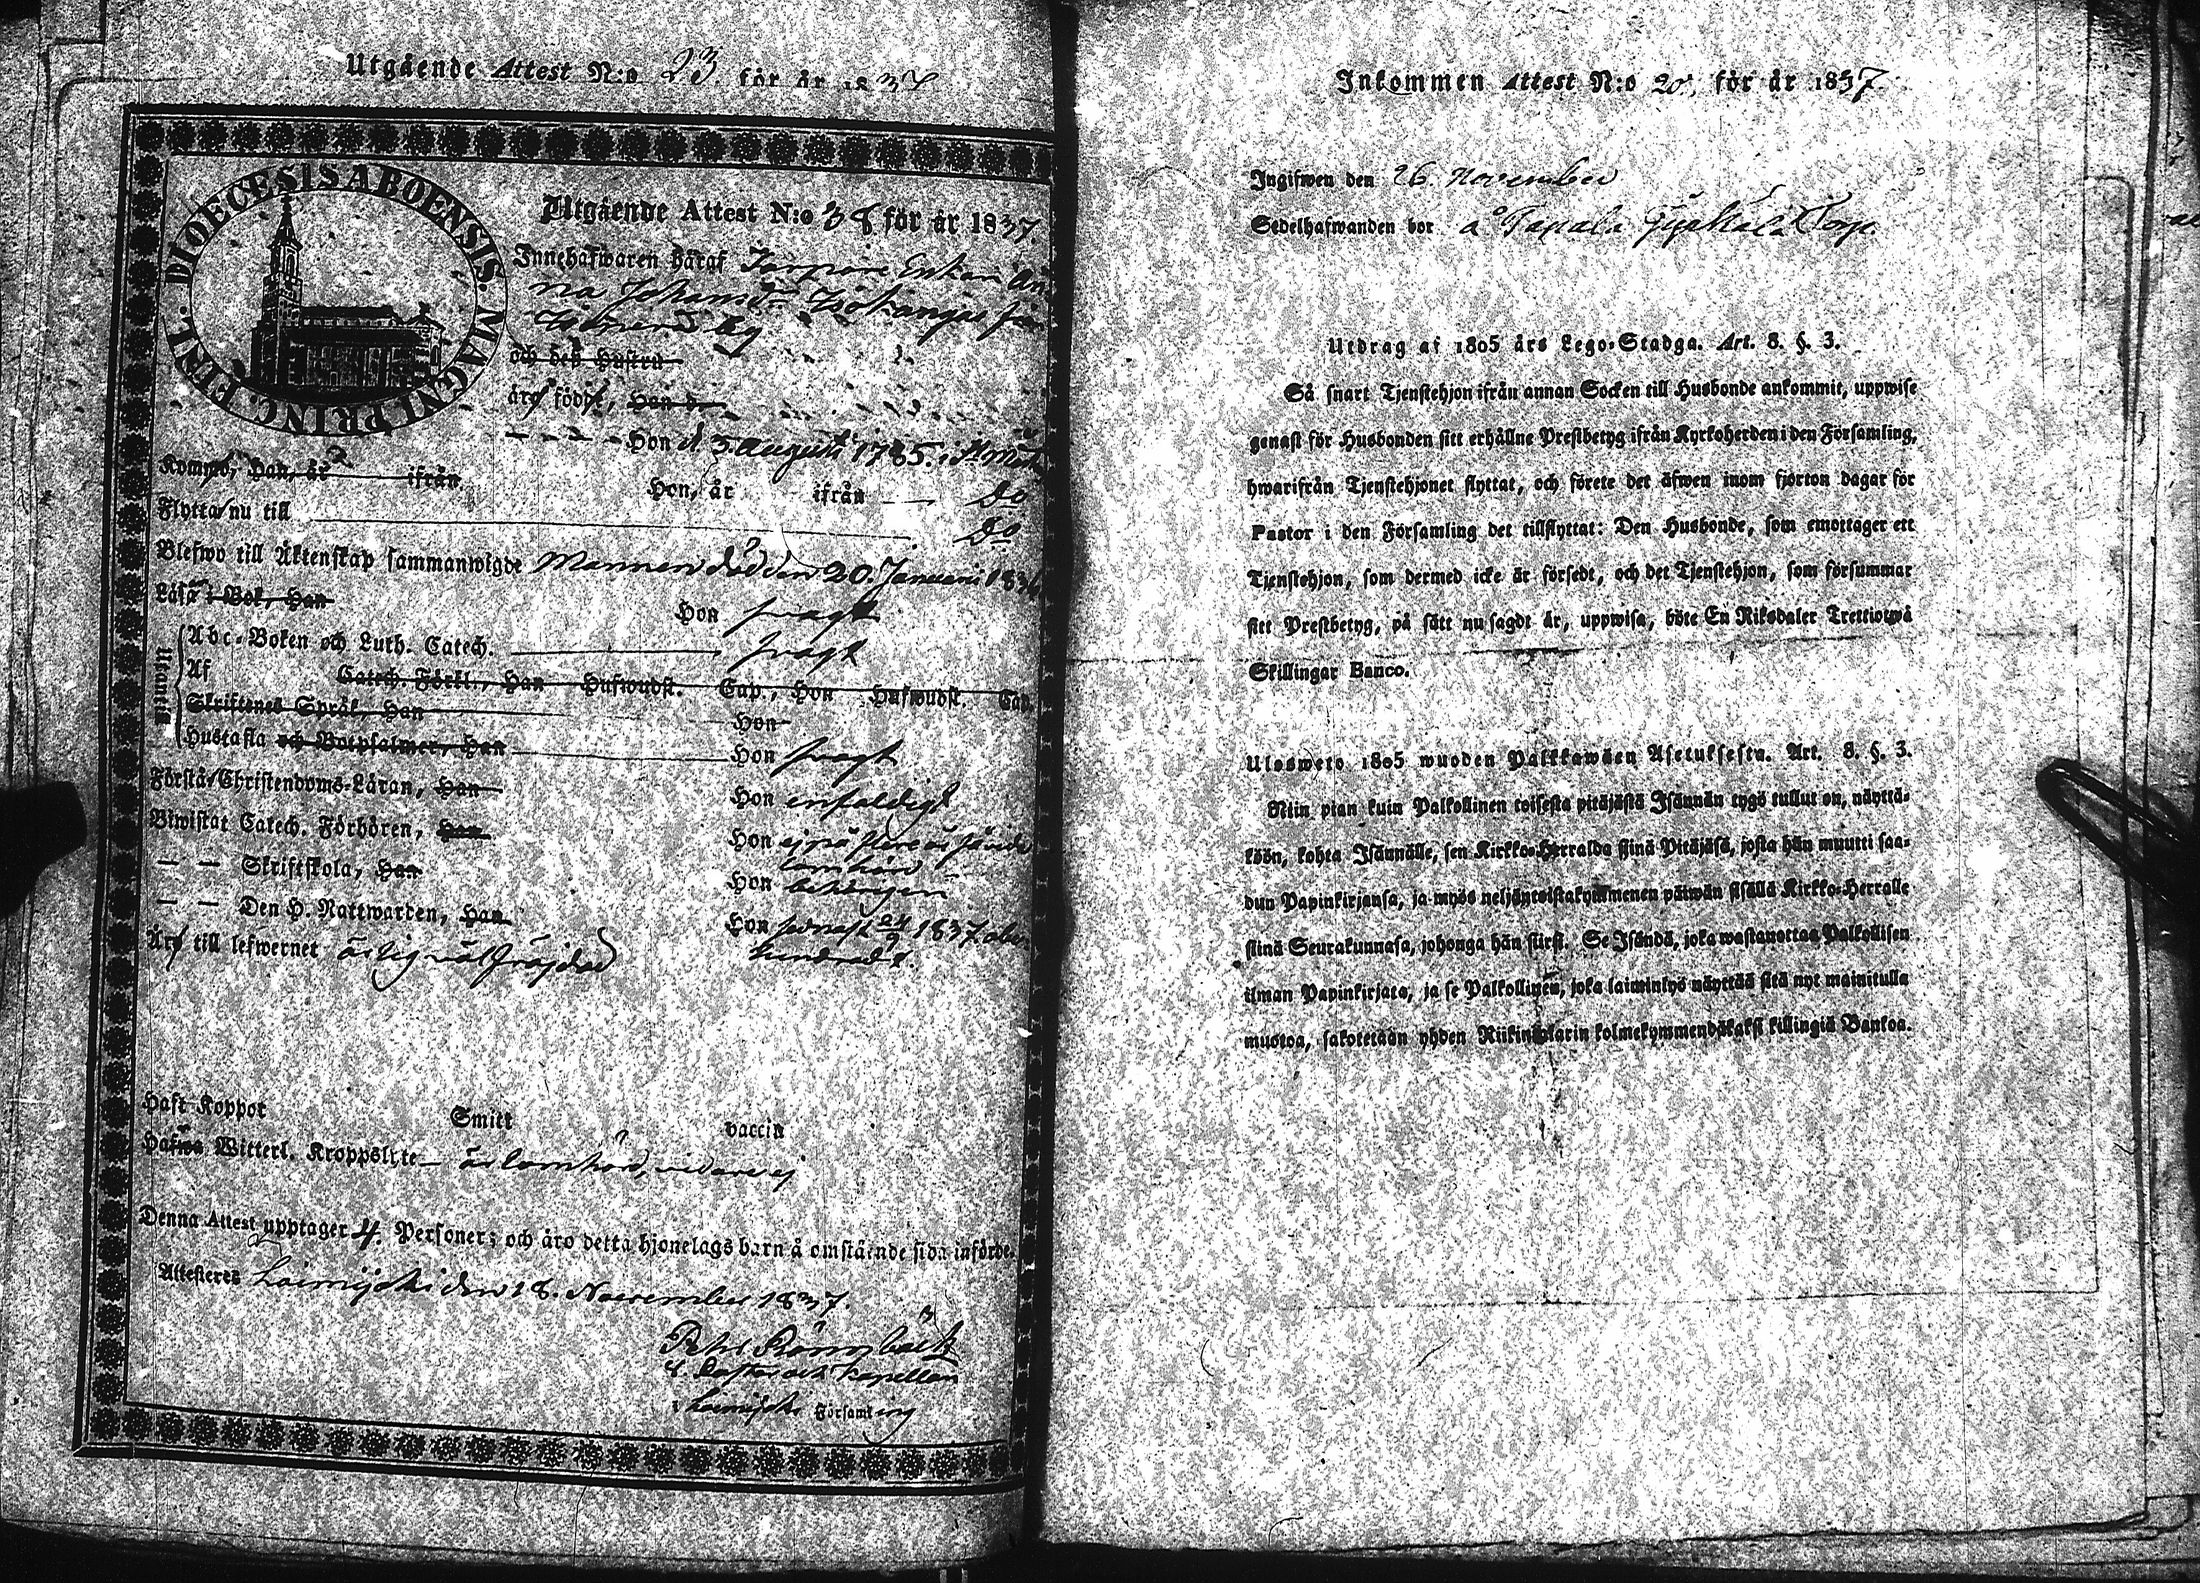 Utgående Attest N:o 23 för år 1837
FINL. DIOECESIS ABOENSIS. MAGNI PRINC.
Utgående Attest N:o 38 för år 1837.
Innehafwaren häraf Torpare Enkan An
na Johans Dr
och deß Hustru
äro född, Han d.
Hon d 3. Augusti 1785. i
Kommo, Han, år ifrån
Hon, år ifrån Do
Flytta nu till Do
Blefwo till Äktenskap sammanwigde Mannen död den 20. Januarii 183
Läsa i Bok, Han Hon svagt
Utantill
Abc-Boken och Luth. Catech. svagt
Af Catech. Förkl., Han Hufwudst. Cap., Hon Hufwudst. Cap.
Skriftenes Språk, Han Hon
Hustafla och Botpsalmer, Han Hon svagt
Förstå Christendoms-Läran, Han Hon enfaldigt
Biwistat Catech. Förhören, Han Hon ej på flere år såsom
lomhörd
— — Skriftskola, Han Hon
— — Den H. Nattwarden, Han Hon sednast 24/9 1837. obe-
Äro till lefwernet ärlig väl fräjdad hindrad.
Haft Koppor Smitt vaccin
Hafwa Witterl. Kroppslyte — är lomhörd, vidare ej
Denna Attest upptager 4. Personer; och äro detta hjonelags barn å omstående sida införde.
Attesteres Loimijoki den 18. November 1837.
Petr. Rönnbäck
Pastor och Kapellan
i Loimijoki Församling
Inkommen Attest N:o 20, för år 1837.
Ingifwen den 26. November
Sedelhafwanden bor å Tapala Torp
Utdrag af 1805 års Lego-Stadga. Art. 8. §. 3.
Så snart Tjenstehjon ifrån annan Socken till Husbonde ankommit, uppwise
genast för Husbonden sitt erhållne Prestbetyg ifrån Kyrkoherden i den Församling,
hwarifrån Tjenstehjonet flyttat, och förete det äfwen inom fjorton dagar för
Pastor i den Församling det tillflyttat: Den Husbonde, som emottager ett
Tjenstehjon, som dermed icke är försedt, och det Tjenstehjon, som försummar
sitt Prestbetyg, på sätt nu sagdt är, uppwisa, böte En Riksdaler Trettiotwå
Skillingar Banco.
Ulosweto 1805 wuoden Palkkawäen Asetuksesta. Art. 8. §. 3.
Niin pian kuin Palkollinen toisesta pitäjästä Isännän tygö tullut on, näyttä-
köön, kohta Isännälle, sen Kirkko-Herralda siinä Pitäjäsä, josta hän muutti saa-
dun Papinkirjansa, ja myös neljäntoistakymmenen päiwän sisällä Kirkko-Herralle
siinä Seurakunnasa, johonga hän siirsi. Se Isändä, joka wastanottaa Palkollisen
ilman Papinkirjata, ja se Palkollinen, joka laiminlyö näyttää sitä nyt mainitulla
muotoa, sakotetaan yhden Riikintalarin kolmekymmendäkaksi killingiä Bankoa.